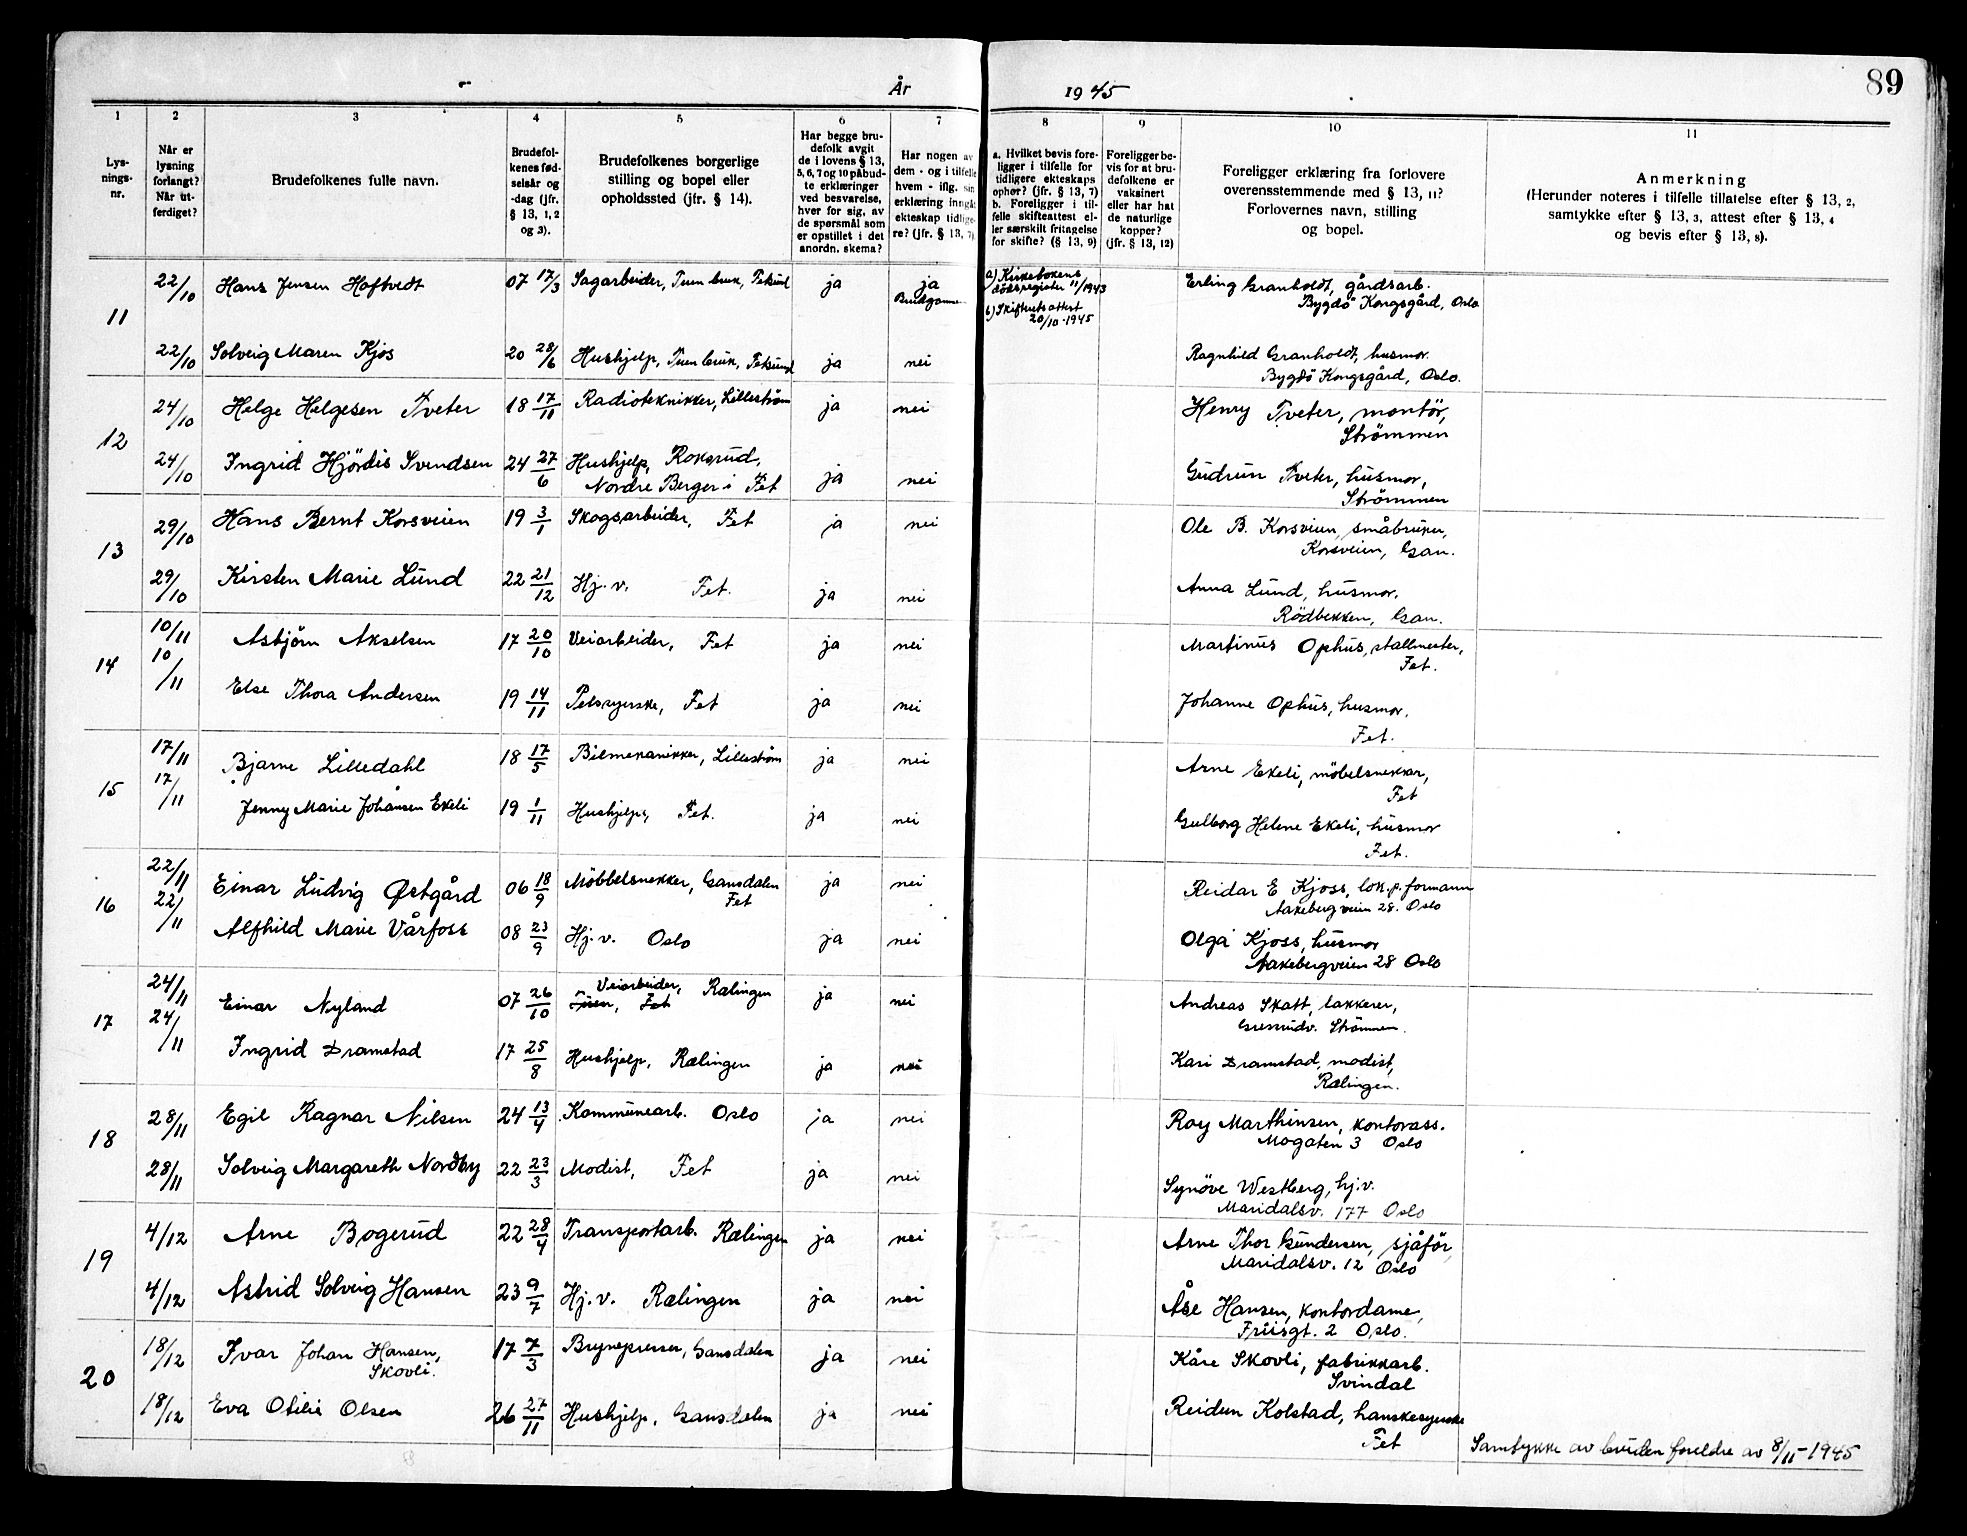 År 1945
89
1 2 3 4 5 6 7 8 9 10 11
Lys-
nings-
nr.
Når er
lysning
forlangt?
Når ut-
ferdiget?
Brudefolkenes fulle navn.
Brudefol-
kenes fød-
selsår og
-dag (jfr.
§ 13, 1, 2
og 3).
Brudefolkenes borgerlige
stilling og bopel eller
opholdssted (jfr. § 14).
Har begge bru-
defolk avgit
de i lovens § 13,
5, 6, 7 og 10 påbud-
te erklæringer
ved besvarelse,
hver for sig, av
de spørsmål som
er opstillet i det
anordn. skema?
Har nogen av
dem - og i tilfelle
hvem - iflg. sin
erklæring inngåt
ekteskap tidlige-
re? (jfr. § 13, 7)
a. Hvilket bevis fore-
ligger i tilfelle for
tidligere ekteskaps
ophør? (jfr. § 13, 7)
b. Foreligger i til-
felle skifteattest el-
ler særskilt fritagelse
for skifte? (§ 13, 9)
Foreligger be-
vis for at bru-
defolkene er
vaksinert
eller har hat
de naturlige
kopper?
(jfr. § 13, 12)
Foreligger erklæring fra forlovere
overensstemmende med § 13, 11?
Forlovernes navn, stilling
og bopel.
Anmerkning
(Herunder noteres i tilfelle tillatelse efter § 13, 2,
samtykke efter § 13, 3, attest efter § 13, 4
og bevis efter § 13, 8).
11
22/10 Hans Jensen Hoftvedt 07 17/3 Sagarbeider, Tuen bruk, Fetsund ja ja
Brudgommen
a) Kirkebokens
dødsregister 11/1943
b) Skifteattest
20/10-1945
Erling Granholdt, gårdsarb.
Bygdö Kongsgård, Oslo
22/10 Solveig Maren Kjos 20 28/6 Hushjelp, Tuen bruk, Fetsund ja nei Ragnhild Granholdt, husmor.
Bygdö Kongsgård, Oslo.
12
24/10 Helge Helgesen Tveter 18 17/11 Radioteknikker, Lilleström ja nei Henry Tveter, montör,
Strömmen
24/10 Ingrid Hjördis Svendsen 24 27/6 Hushjelp, Roksrud,
Nordre Berger i Fet ja nei Gudrun Tveter, husmor,
Strömmen
13
29/10 Hans Bernt Korsveien 19 3/1 Skogsarbeider, Fet ja nei Ole B. Korsveien, småbruker,
Korsveien, Gan.
29/10 Kirsten Marie Lund 22 21/12 Hj. v. Fet. ja nei Anna Lund, husmor.
Rödbekken, Gan.
14
10/11 Asbjörn Akselsen 17 20/10 Veiarbeider, Fet ja nei Martinus Ophus, stallmester,
Fet.
10/11 Else Thora Andersen 19 14/11 Pelssyerske, Fet ja nei Johanne Ophus, husmor.
Fet.
15
17/11 Bjarne Lilledahl 18 17/5 Bilmekanikker, Lilleström ja nei Arne Ekeli, möbelsnekker,
Fet
17/11 Jenny Marie Johansen Ekeli 19 1/11 Hushjelp, Fet. ja nei Gulborg Helene Ekeli, husmor
Fet.
16
22/11 Einar Ludvig Østgård 06 18/9 Möbbelsnekker, Gansdalen
Fet ja nei Reidar E Kjoss, lok.p. formann
Aakebergveien 28. Oslo
22/11 Alfhild Marie Vårfoss 08 23/9 Hj. v. Oslo ja nei Olga Kjoss, husmor
Aakebergveien 28 Oslo
17
24/11 Einar Nyland 07 26/10 Veiarbeider, Rælingen
Fet ja nei Andreas Skatt, lakkerer,
Strömmen.
24/11 Ingrid Dramstad 17 25/8 Hushjelp, Rælingen ja nei Kari Dramstad, modist,
Rælingen.
18
28/11 Egil Ragnar Nilsen 24 13/4 Kommunearb. Oslo ja nei Roy Marthinsen, kontorass.
Mogaten 3 Oslo
28/11 Solveig Margareth Nordby 22 23/3 Modist, Fet ja nei Synöve Westberg, hj.v.
Maridalsv. 177 Oslo
19
4/12 Arne Bogerud 22 28/4 Transportarb. Rælingen ja nei Arne Thor Gundersen, sjåför,
Maridalsv. 12 Oslo
4/12 Astrid Solveig Hansen 23 9/7 Hj. v. Rælingen ja nei Åse Hansen, kontordame,
Friisgt. 2 Oslo.
20
18/12 Ivar Johan Hansen,
Skovli. 17 7/3 Brynepresser, Gansdalen ja nei Kåre Skovli, fabrikkarb.
Svindal
18/12 Eva Otilie Olsen 26 27/11 Hushjelp, Gansdalen ja nei Reidun Kolstad, hanskesyerske
Fet
Samtykke av bruden foreldre av 8/11-1945